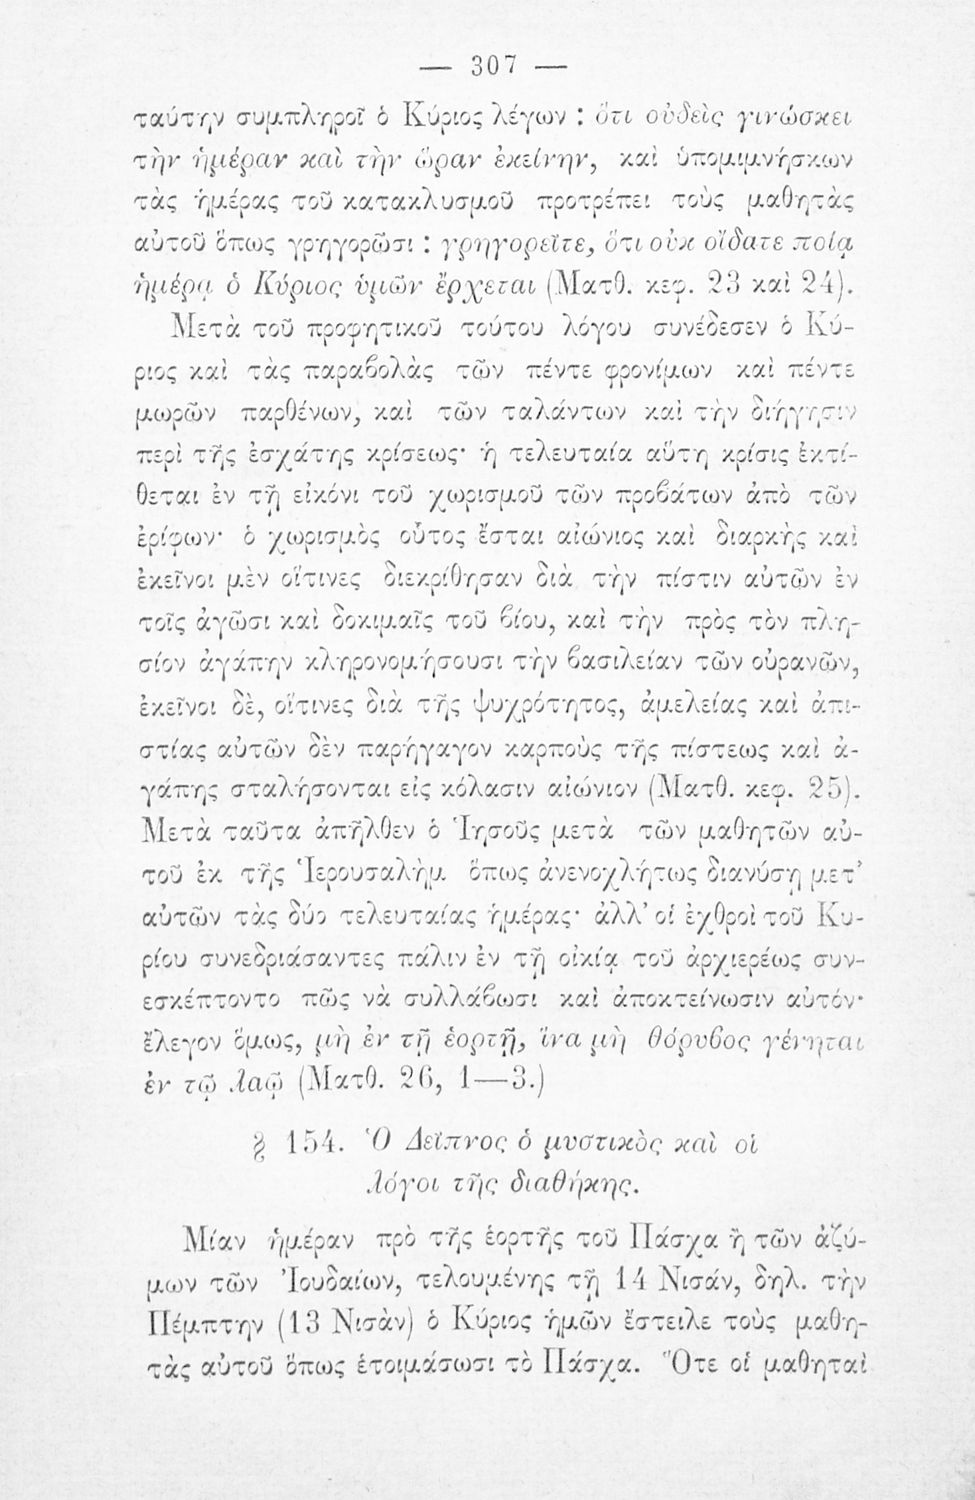 — 307 —
ταύτην συμπληροῖ ὁ Κύριος λέγων : ὅτι οὐδεὶς γινώσκει
τὴν ἡμέραν καὶ τὴν ὥραν ἐκείνην, καὶ ὑπομιμνήσκων
τὰς ἡμέρας τοῦ κατακλυσμοῦ προτρέπει τοὺς μαθητὰς
αὐτοῦ ὅπως γρηγορῶσι : γρηγορεῖτε, ὅτι οὐκ οἴδατε ποίᾳ
ἡμέρᾳ ὁ Κύριος ὑμῶν ἔρχεται (Ματθ. κεφ. 23 καὶ 24).
Μετὰ τοῦ προφητικοῦ τούτου λόγου συνέδεσεν ὁ Κύ-
ριος καὶ τὰς παραβολὰς τῶν πέντε φρονίμων καὶ πέντε
μωρῶν παρθένων, καὶ τῶν ταλάντων καὶ τὴν διήγησιν
περὶ τῆς ἐσχάτης κρίσεως· ἡ τελευταία αὕτη κρίσις ἐκτί-
θεται ἐν τῇ εἰκόνι τοῦ χωρισμοῦ τῶν προβάτων ἀπὸ τῶν
ἐρίφων· ὁ χωρισμὸς οὗτος ἔσται αἰώνιος καὶ διαρκὴς καὶ
ἐκεῖνοι μὲν οἵτινες διεκρίθησαν διὰ τὴν πίστιν αὐτῶν ἐν
τοῖς ἀγῶσι καὶ δοκιμαῖς τοῦ βίου, καὶ τὴν πρὸς τὸν πλη-
σίον ἀγάπην κληρονομήσουσι τὴν βασιλείαν τῶν οὐρανῶν,
ἐκεῖνοι δὲ, οἵτινες διὰ τῆς ψυχρότητος, ἀμελείας καὶ ἀπι-
στίας αὐτῶν δὲν παρήγαγον καρποὺς τῆς πίστεως καὶ ἀ-
γάπης σταλήσονται εἰς κόλασιν αἰώνιον (Ματθ. κεφ. 25).
Μετὰ ταῦτα ἀπῆλθεν ὁ Ἰησοῦς μετὰ τῶν μαθητῶν αὐ-
τοῦ ἐκ τῆς Ἱερουσαλὴμ ὅπως ἀνενοχλήτως διανύσῃ μετ’
αὐτῶν τὰς δύο τελευταίας ἡμέρας· ἀλλ’ οἱ ἐχθροὶ τοῦ Κυ-
ρίου συνεδριάσαντες πάλιν ἐν τῇ οἰκίᾳ τοῦ ἀρχιερέως συν-
εσκέπτοντο πῶς νὰ συλλάβωσι καὶ ἀποκτείνωσιν αὐτόν·
ἔλεγον ὅμως, μὴ ἐν τῇ ἑορτῇ, ἵνα μὴ θόρυβος γένηται
ἐν τῷ λαῷ (Ματθ. 26, 1—3.)
§ 154. Ὁ Δεῖπνος ὁ μυστικὸς καὶ οἱ
λόγοι τῆς διαθήκης.
Μίαν ἡμέραν πρὸ τῆς ἑορτῆς τοῦ Πάσχα ἢ τῶν ἀζύ-
μων τῶν Ἰουδαίων, τελουμένης τῇ 14 Νισάν, δηλ. τὴν
Πέμπτην (13 Νισὰν) ὁ Κύριος ἡμῶν ἔστειλε τοὺς μαθη-
τὰς αὐτοῦ ὅπως ἑτοιμάσωσι τὸ Πάσχα. Ὅτε οἱ μαθηταὶ